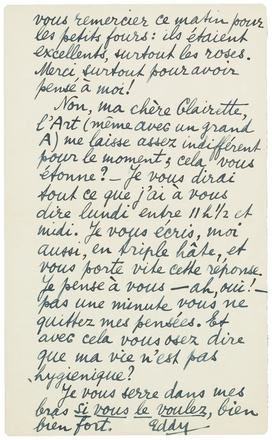 vous remercier ce matin pour
les petits fours : ils étaient
excellents, surtout les roses.
Merci, surtout pour avoir
pensé à moi !
Non, ma chère Clairette,
l'Art (même avec un grand
A) me laisse assez indifférent
pour le moment ; cela, vous
étonne ? — Je vous dirai
tout ce que j'ai à vous
dire lundi entre 11 h ½ et
midi. Je vous écris, moi
aussi, en triple hâte, et
vous porte vite cette réponse.
Je pense à vous — ah, oui ! —
pas une minute vous ne
quittez mes pensées. Et
avec cela vous osez dire
que ma vie n'est pas
hygienique ?
Je vous serre dans mes
bras si vous le voulez, bien
bien fort. Eddy